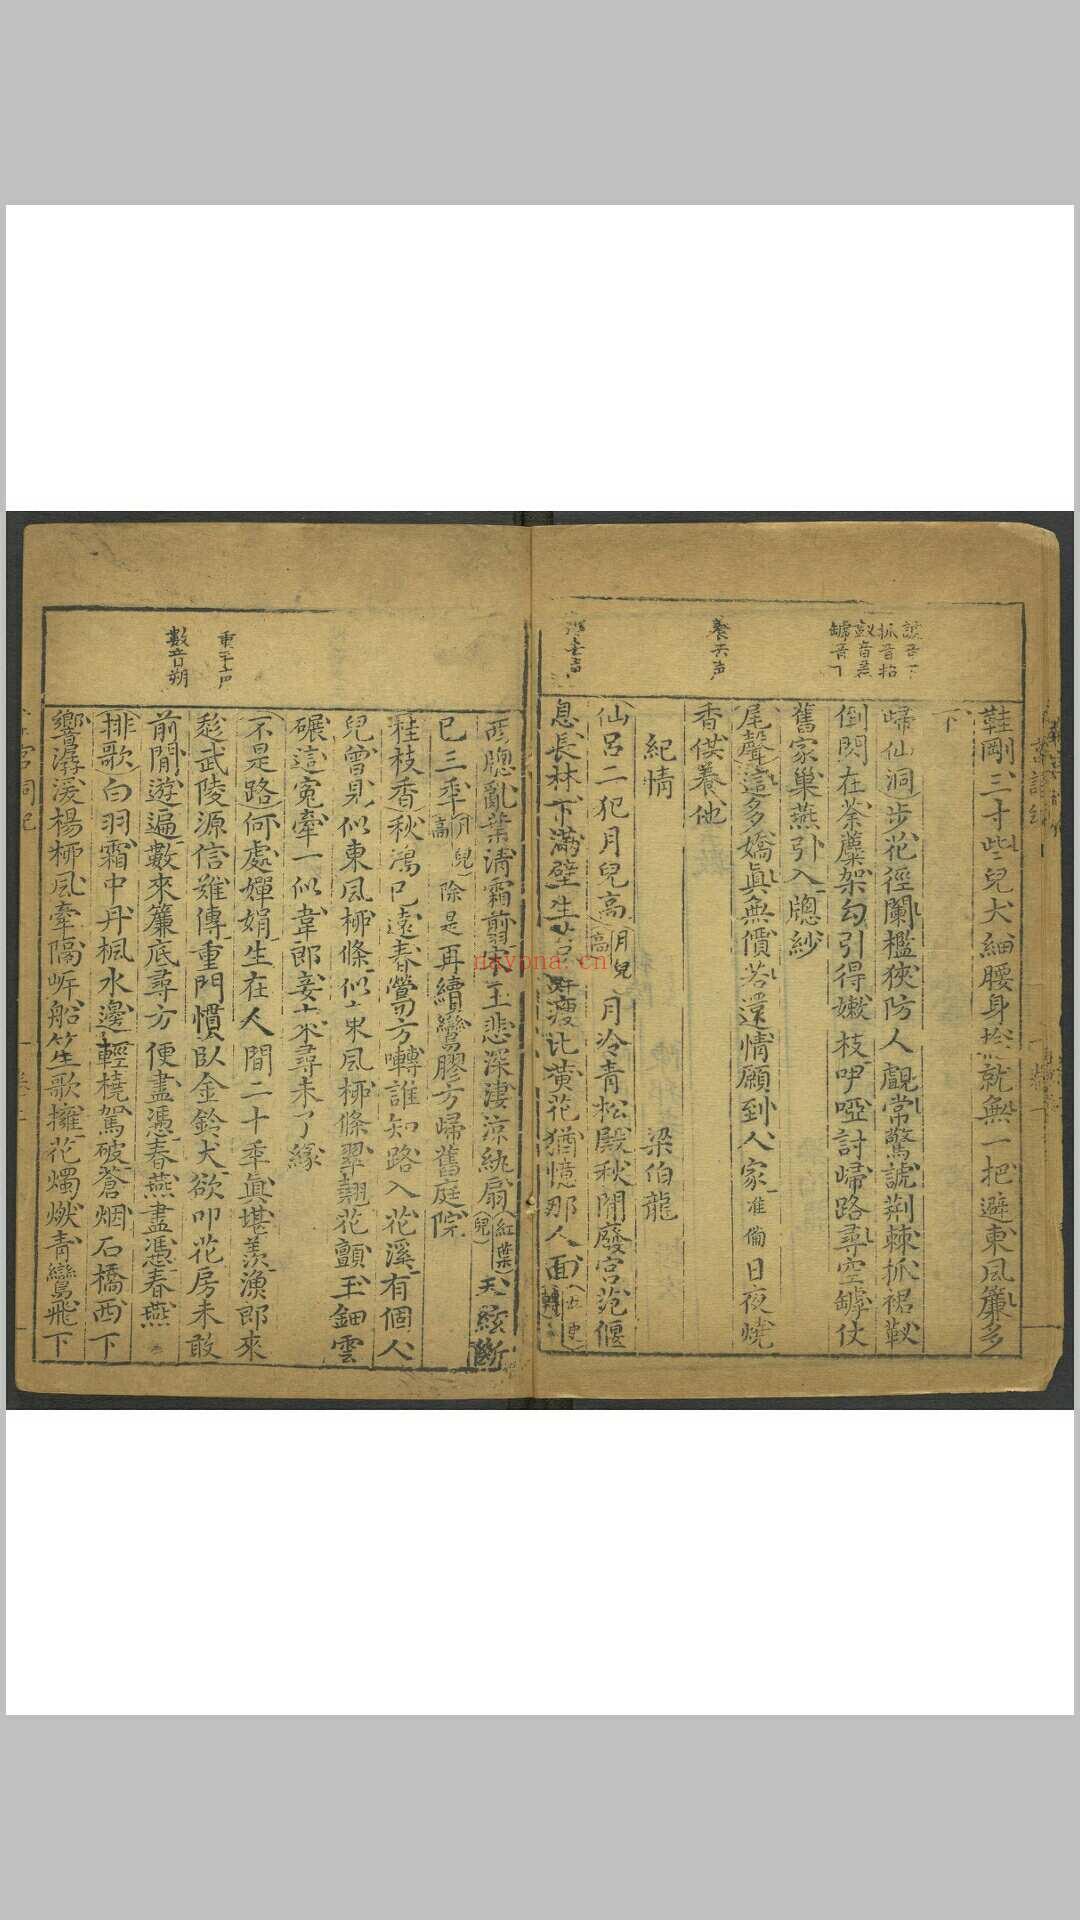 鞋剛三寸些兒大細腰身搦就無一把避東風簾多
下
歸仙洞步花徑闌檻狹防人覷常驚諕荆棘抓裙釵
倒閃在荼蘼架勾引得嫩枝咿啞討歸路尋空罅仗
舊家巢燕引入牕紗
尾聲這多嬌眞無價若還情願到人家准備日夜燒
香供養他
紀情 梁伯龍
仙呂二犯月兒高 月兒高 月冷青松殿秋閒廢宮苑偃
息長林下滿壁生 瘦比黃花猶憶那人面 五更轉
西牕亂葉淸霜剪宋玉悲深淒涼紈扇 紅葉兒 玉絃斷
已三年 月兒高 除是再續鸞膠方歸舊庭院
桂枝香秋鴻已遠春鶯方囀誰知路入花溪有個人
兒曾見似東風柳條似東風柳條翠翹花顫玉鈿雲
碾這寃牽一似韋郎妾未尋未了緣
不是路何處嬋娟生在人間二十年眞堪羨漁郎來
趂武陵源信難傳重門慣臥金鈴犬欲叩花房未敢
前閒遊遍數來簾底尋方便盡憑春燕盡憑春燕
排歌白羽霜中丹楓水邊輕橈駕破蒼烟石橋西下
響潺湲楊柳風牽隔岸船笙歌擁花燭燃青鸞飛下
抓音招
養去声
重平声
數音朔
nayona.cn